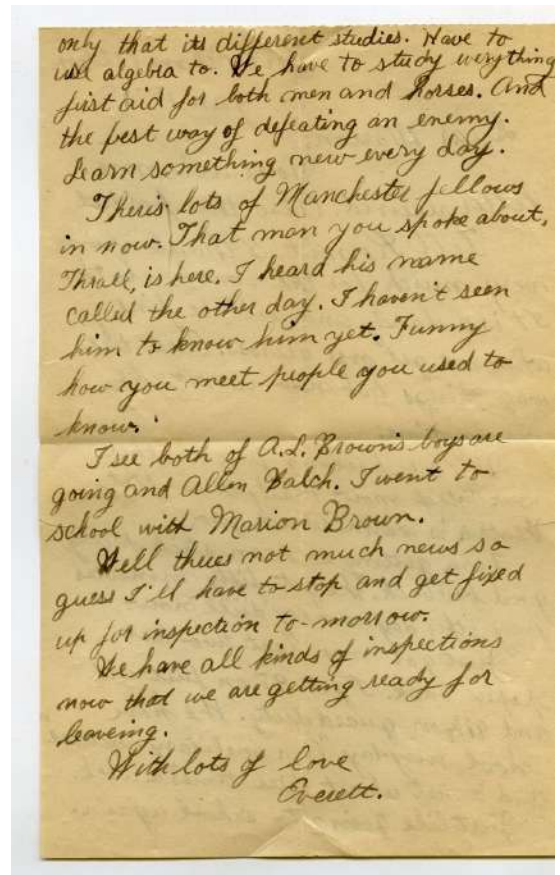 only that its different studies. Have to
use algebra to. We have to study everything
first aid for both men and horses. And
the best way of defeating an enemy.
Learn something new every day.
Theris lots of Manchester fellows
in now. That man you spoke about,
Thrall, is here. I heard his name
called the other day. I haven't seen
him to know him yet. Funny
how you meet people you used to
know.
I see both of A.L. Brown's boys are
going and Allen Balch. I went to
school with Marion Brown.
Well thers not much news so
guess I'll have to stop and get fixed
up for inspection to-morrow.
We have all kinds of inspections
now that we are getting ready for
leaveing.
With lots of love
Everett.